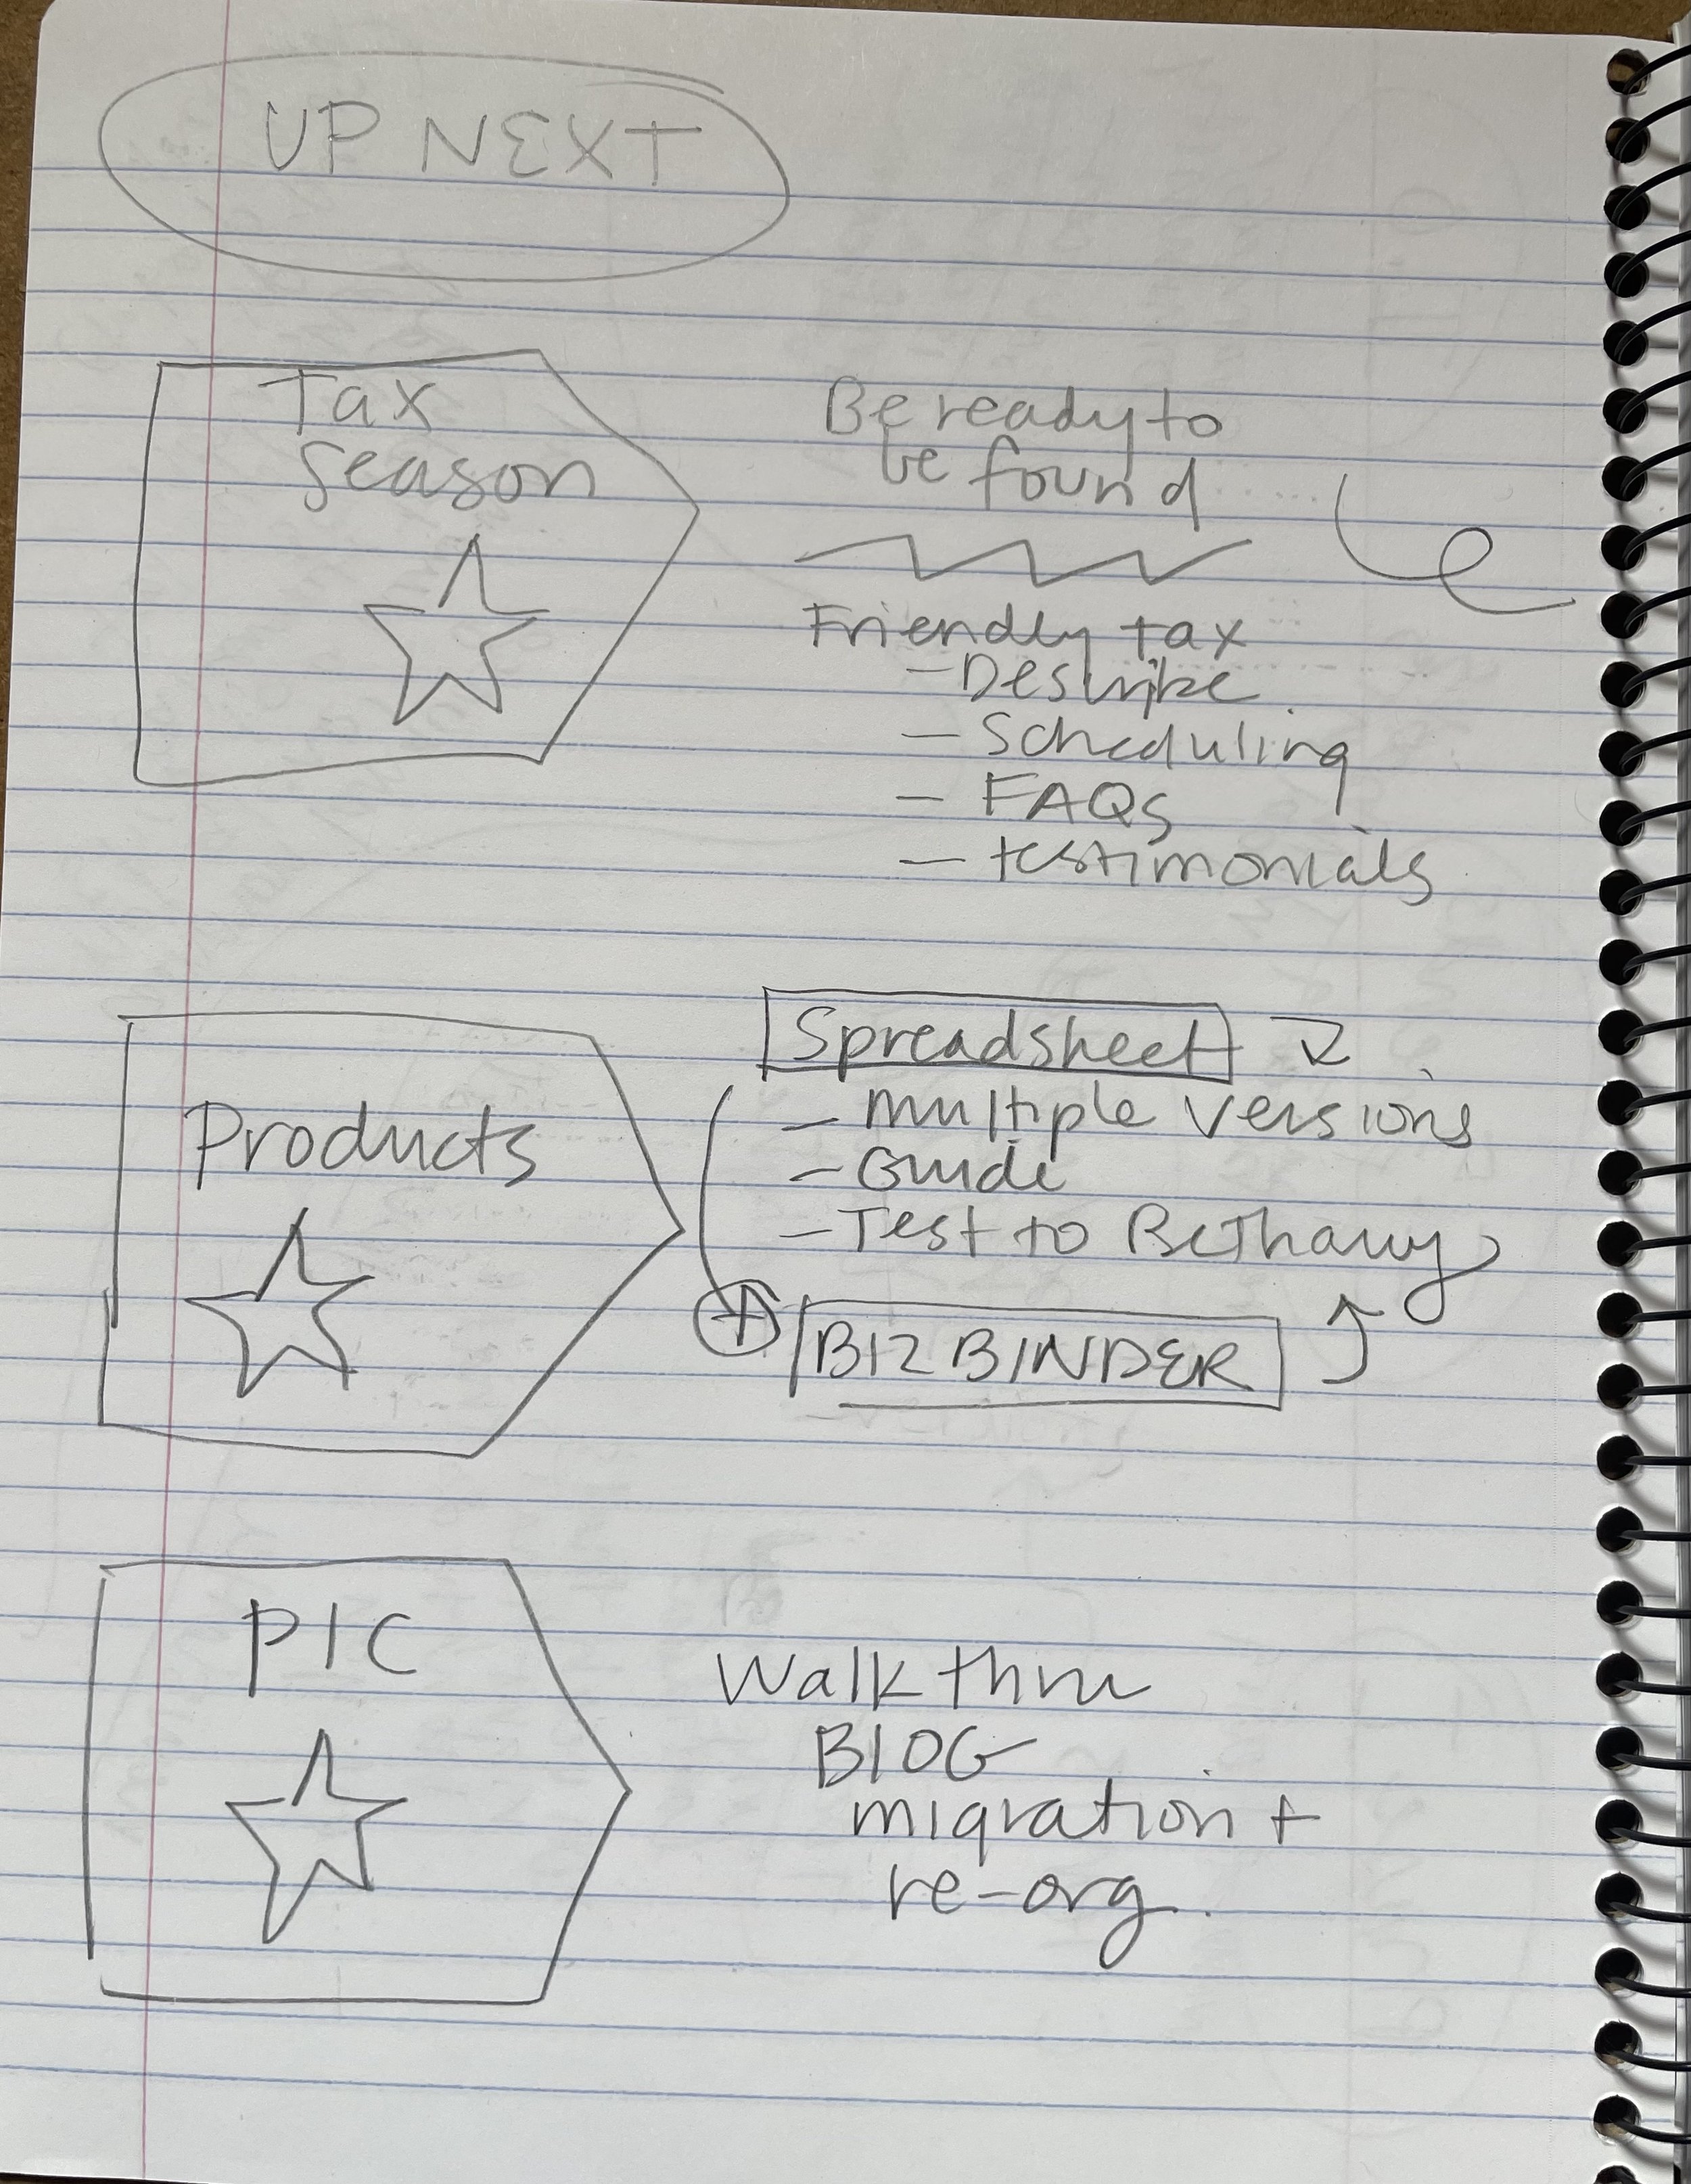 UP NEXT
Tax
Season
Be ready to
be found
Friendly tax
- Describe
- Scheduling
- FAQs
- testimonials
Products
Spreadsheet
- multiple versions
- Guide
- Test to Bethany
+ BIZ BINDER
PIC
Walk thru
BLOG
migration +
re-org.